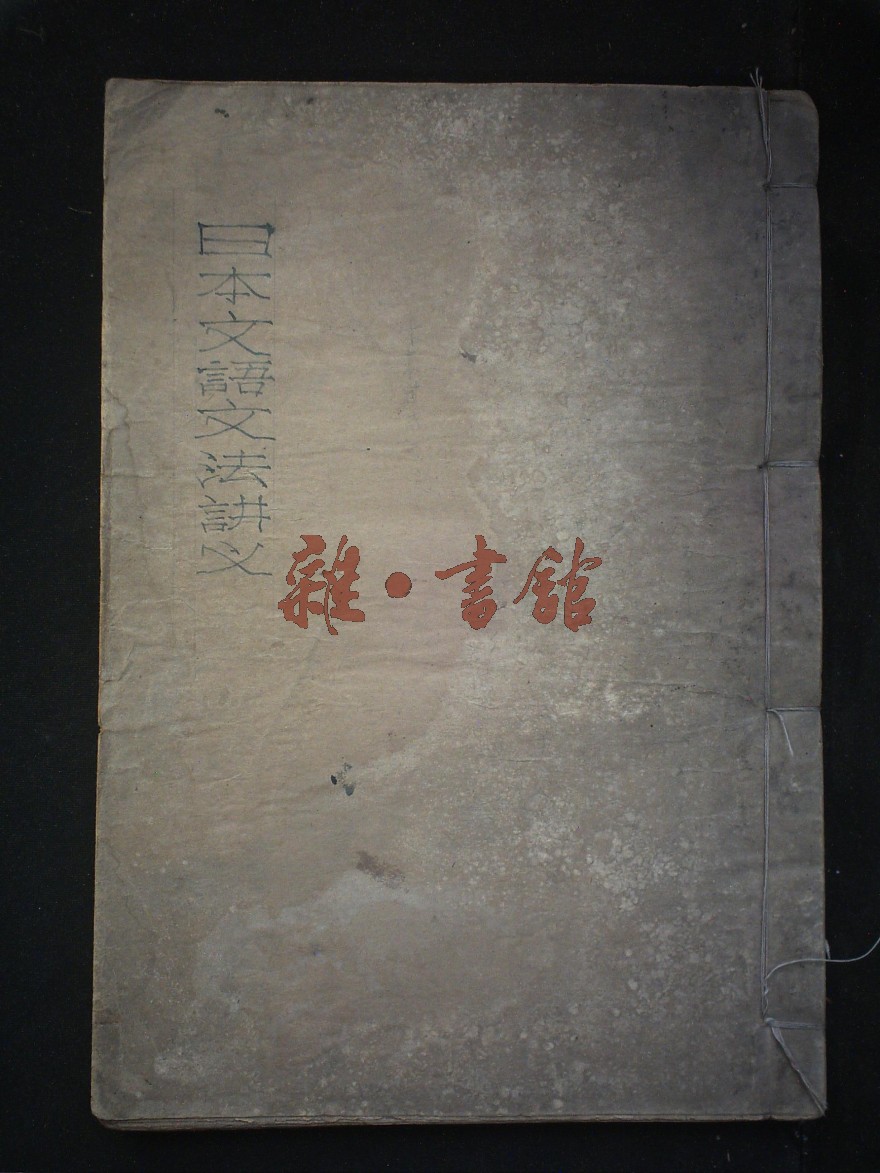 日本文語文法講义
雜·書館